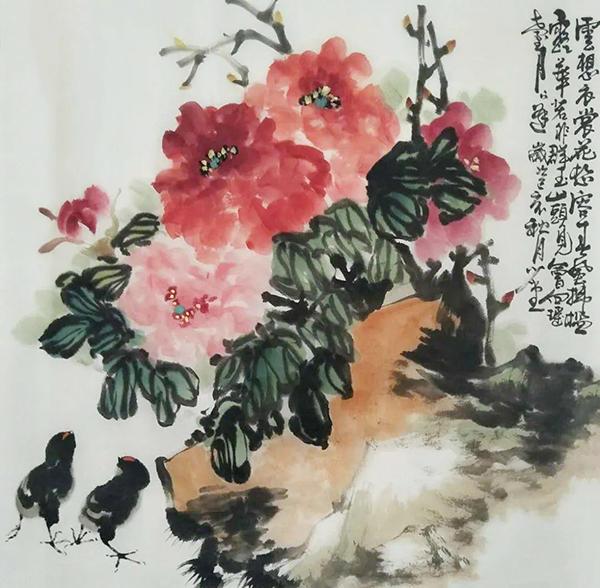 雲想衣裳花想容春風拂檻
露華若非群玉山頭見會向瑤
臺月下逢 歲亥秋月